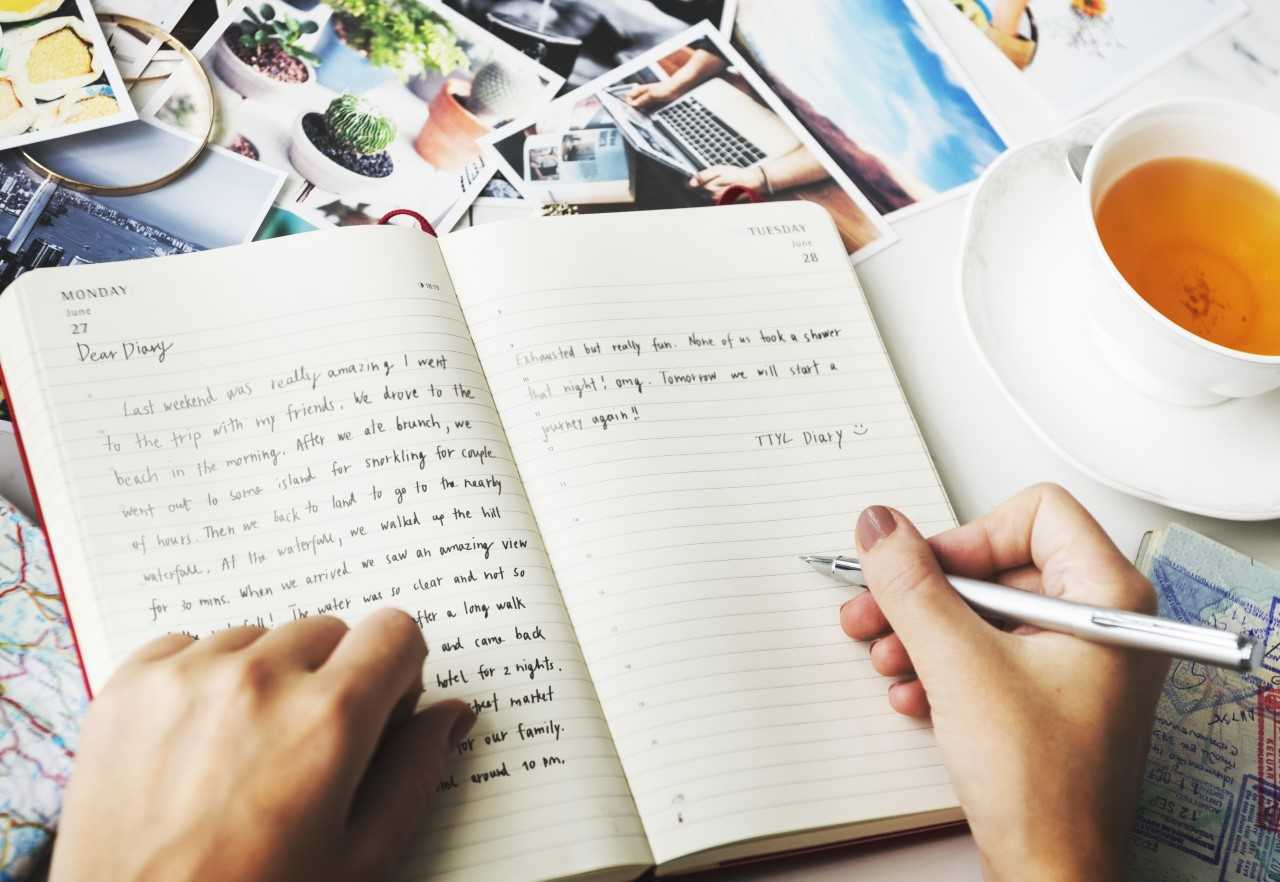 MONDAY
June
27
Dear Diary
Last weekend was really amazing I went
to the trip with my friends. We drove to the
beach in the morning. After we ate brunch, we
went out to some island for snorkling for couple
of hours. Then we back to land to go to the nearby
waterfall. At the waterfall, we walked up the hill
for 30 mins. When we arrived we saw an amazing view
The water was so clear and not so
after a long walk
and came back
hotel for 2 nights.
street market
for our family.
around 10 pm.
TUESDAY
June
28
Exhausted but really fun. None of us took a shower
that night! omg. Tomorrow we will start a
journey again!!
TTYL Diary
KELUAR
12 SEP